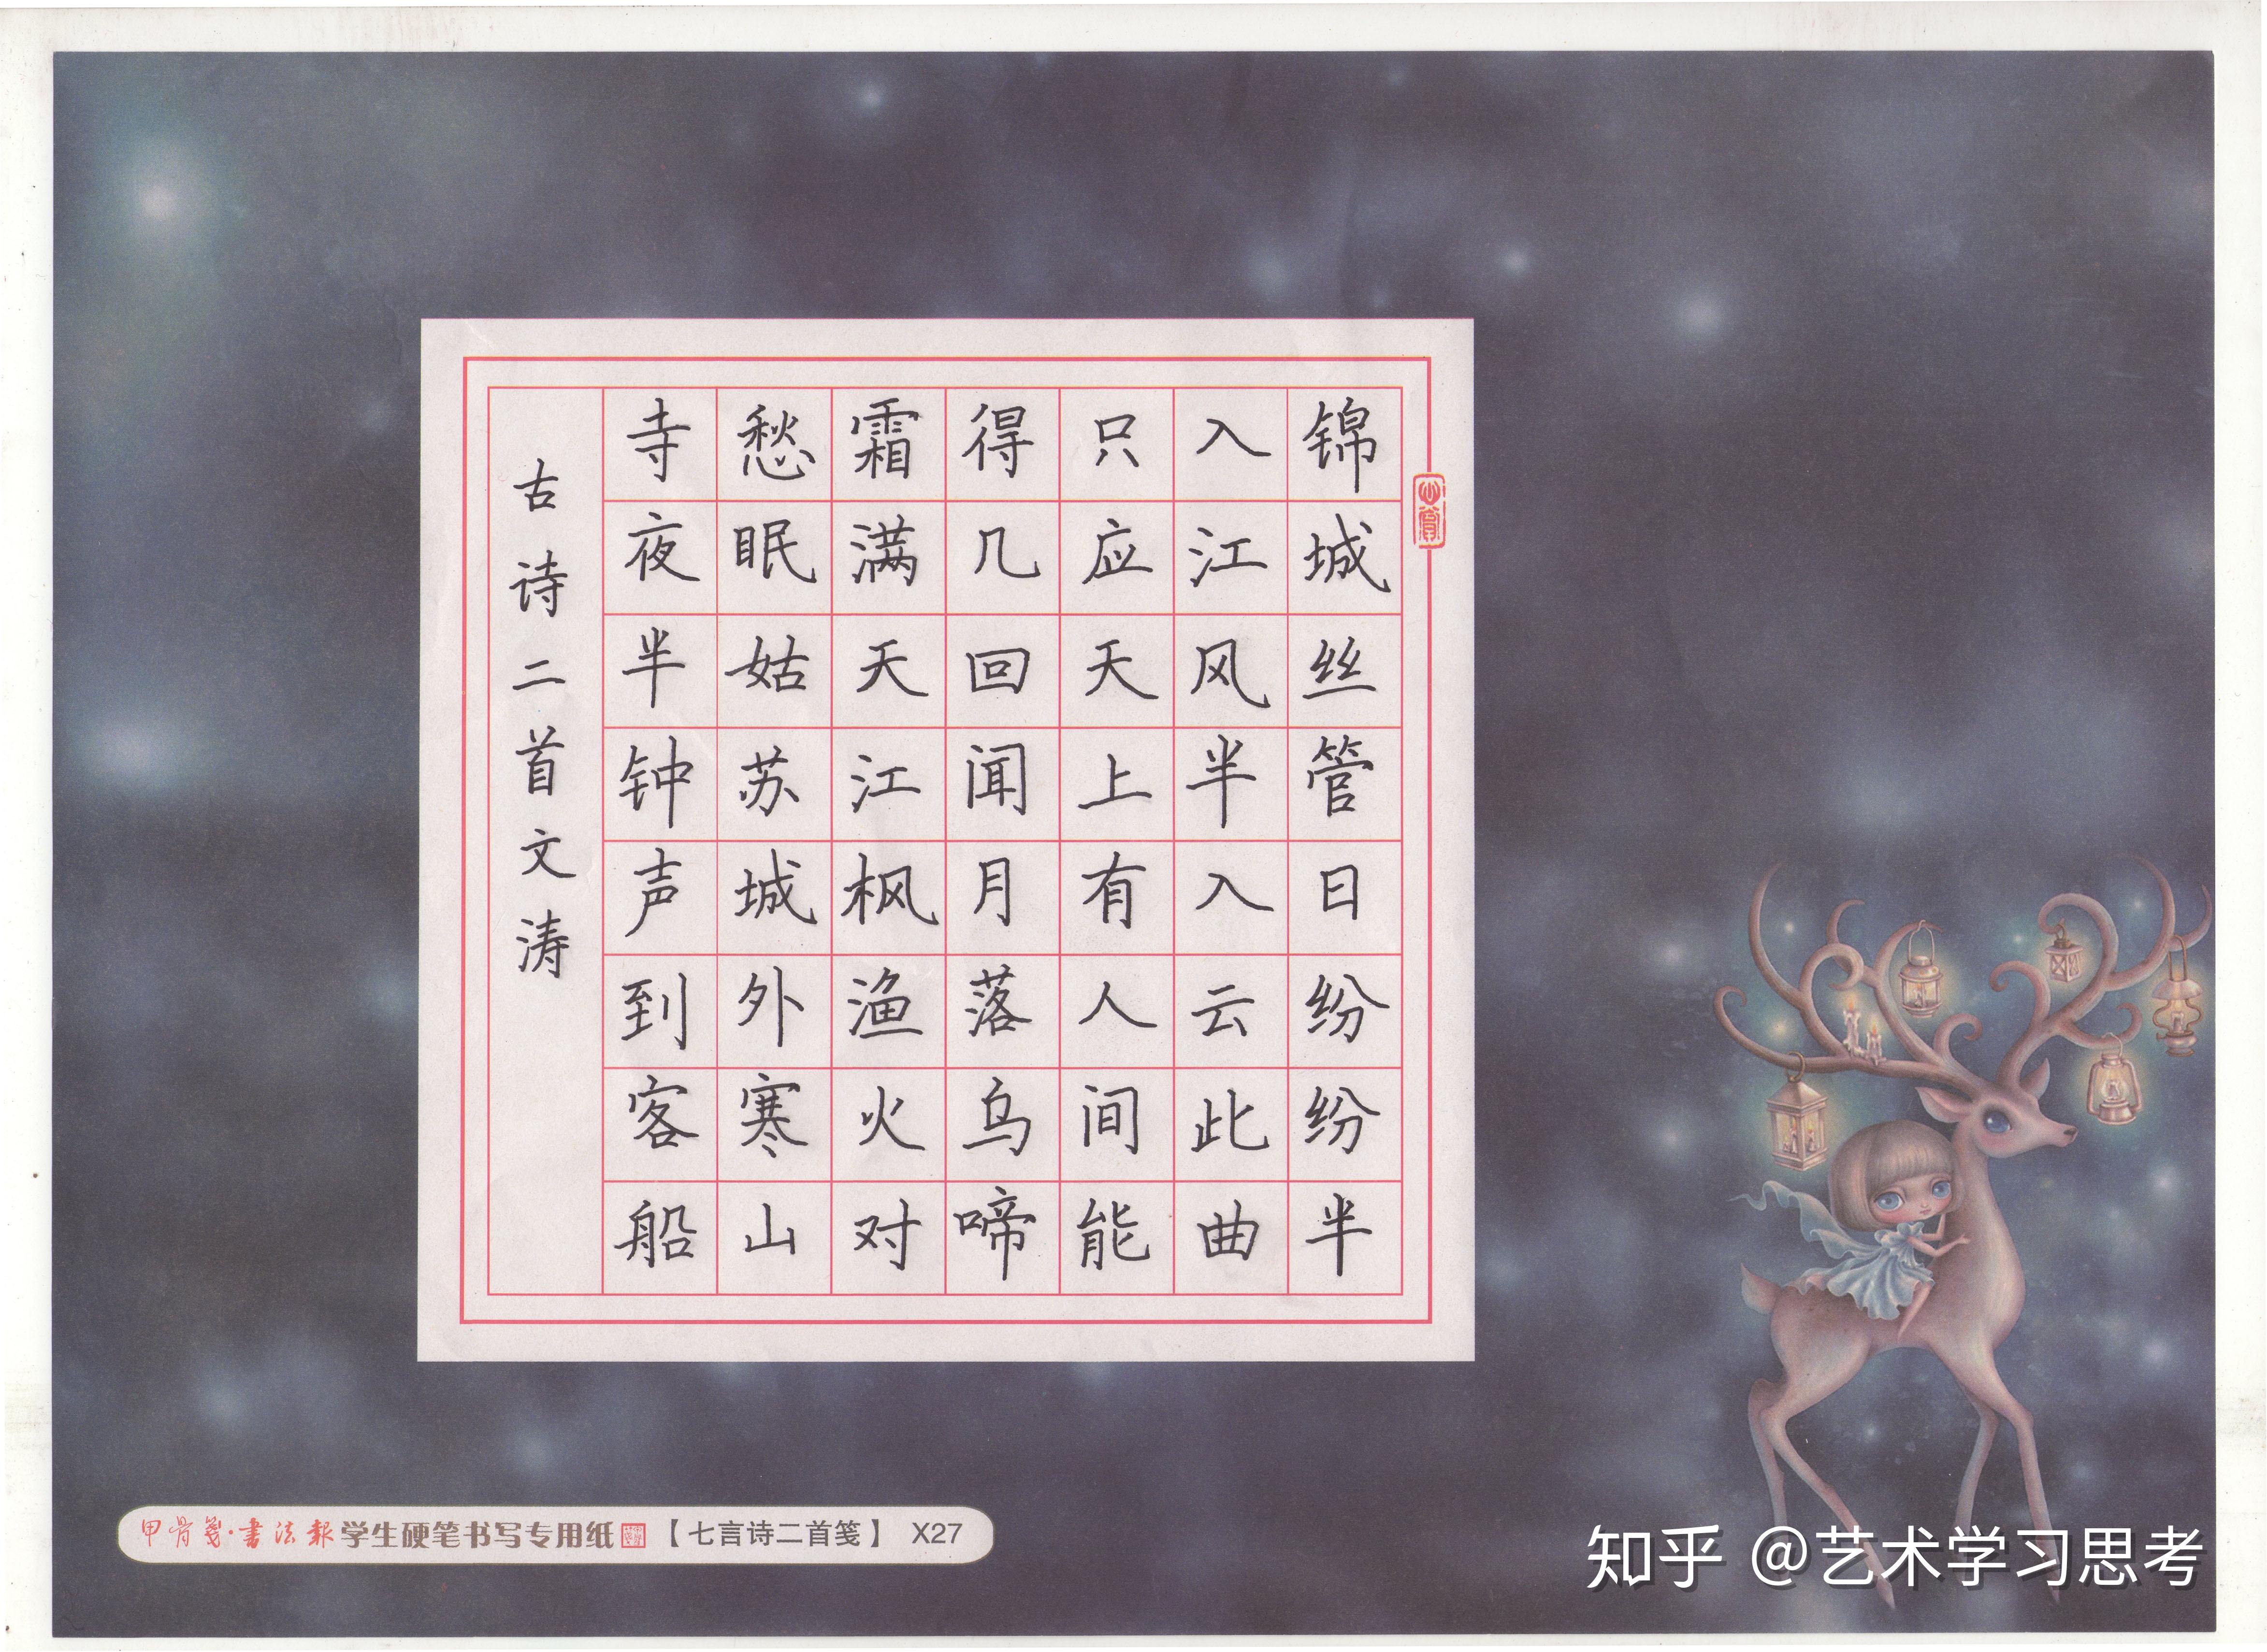 锦城丝管日纷纷半
入江风半入云此曲
只应天上有人间能
得几回闻月落乌啼
霜满天江枫渔火对
愁眠姑苏城外寒山
寺夜半钟声到客船
古诗二首文涛
甲骨笺·书法報学生硬笔书写专用纸【七言诗二首笺】 X27
知乎 @艺术学习思考